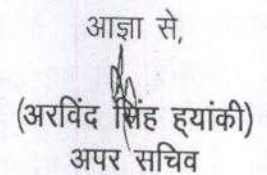 आज्ञा से,
(अरविंद सिंह ह्यांकी)
अपर सचिव